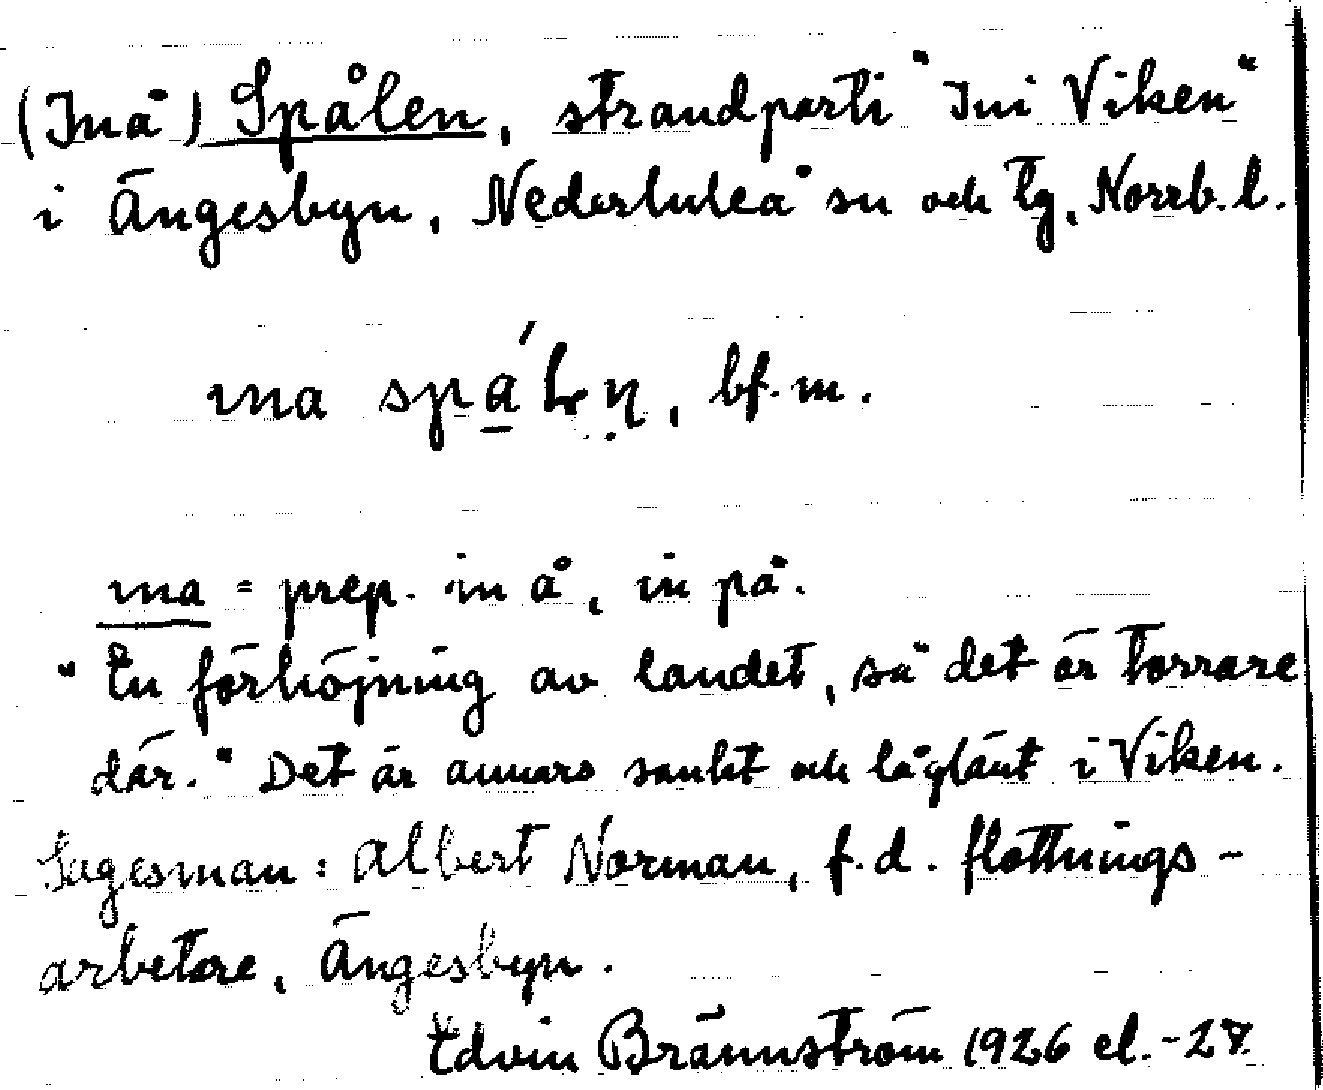 (Inå) Spålen, strandparti "Ini Viken"
i Ängesbyn, Nederluleå sn och tg, Norrb. l.
ɩna spa̲´Ln̥, bf. m.
ɩna = prep. in å, in på.
"En förhöjning av landet, så det är torrare
där." Det är annars sankt och låglänt i Viken.
Sagesman: Albert Norman, f.d. flottnings-
arbetare, Ängesbyn.
Edvin Brännström 1926 el. -27.